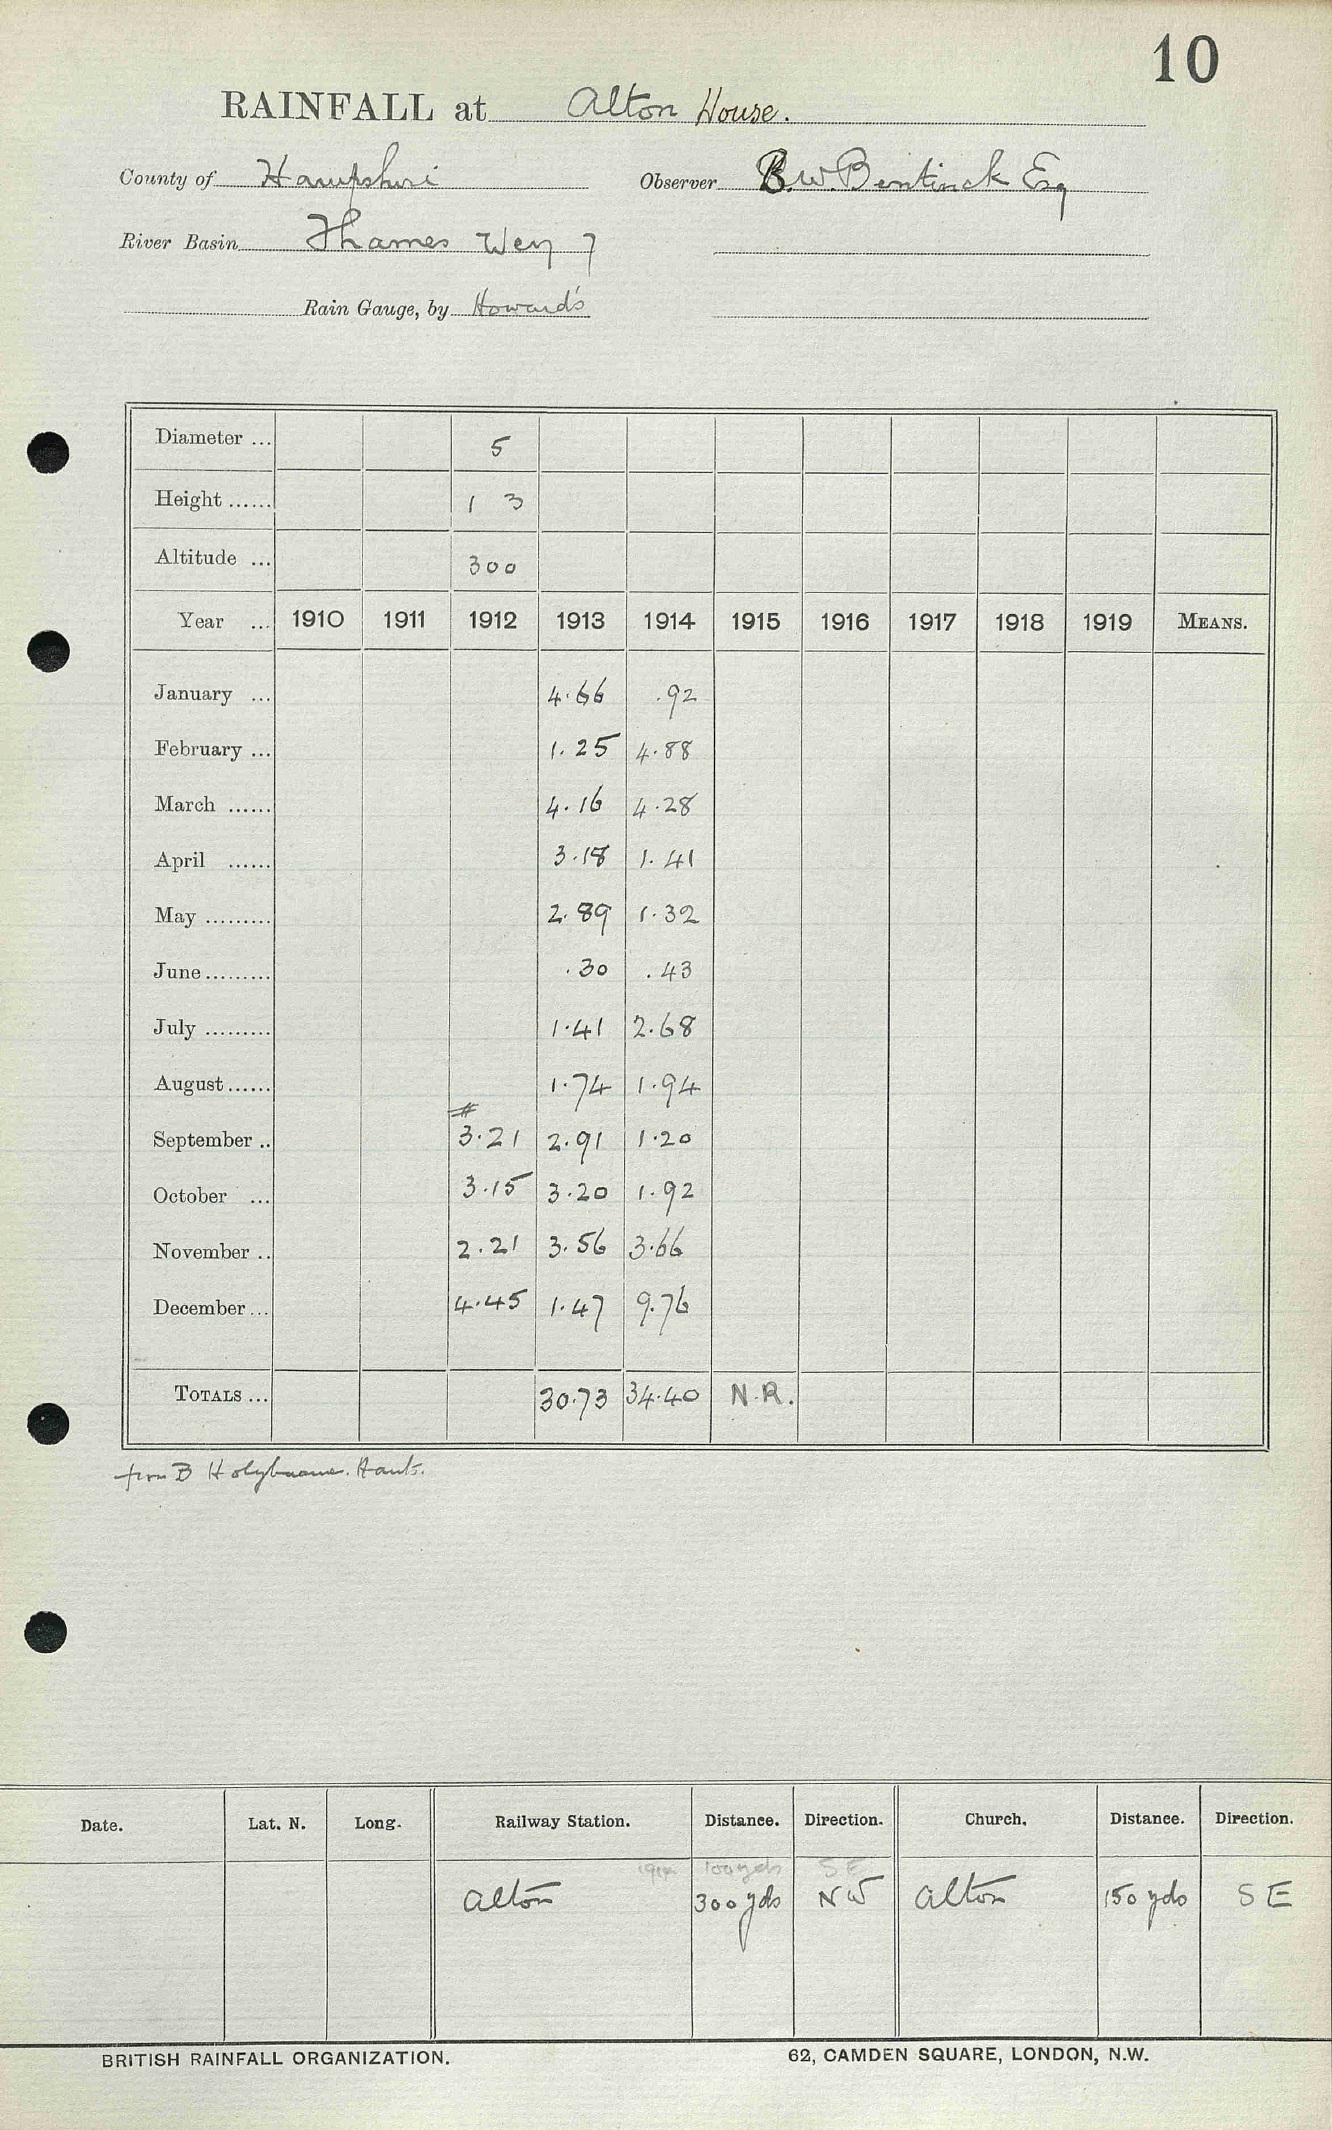 10
RAINFALL at Alton House.
County of Hampshire Observer B.W. Bentinck Esq
River Basin Thames Wey 7
Rain Gauge, by Howard's
Diameter ... 5
Height ...... 1 3
Altitude ... 300
Year ... 1910 1911 1912 1913 1914 1915 1916 1917 1918 1919 MEANS.
January ... 4.66 .92
February ... 1.25 4.88
March ...... 4.16 4.28
April ...... 3.18 1.41
May ......... 2.89 1.32
June ......... .30 .43
July ......... 1.41 2.68
August ...... 1.74 1.94
#
September .. 3.21 2.91 1.20
October ... 3.15 3.20 1.92
November .. 2.21 3.56 3.66
December ... 4.45 1.47 9.76
TOTALS ... 30.73 34.40 N.R.
from B Holybourne. Hants.
Date. Lat. N. Long. Railway Station. Distance. Direction. Church. Distance. Direction.
100 yds S E
Alton 300 yds NW Alton 150 yds S E
BRITISH RAINFALL ORGANIZATION. 62, CAMDEN SQUARE, LONDON, N.W.